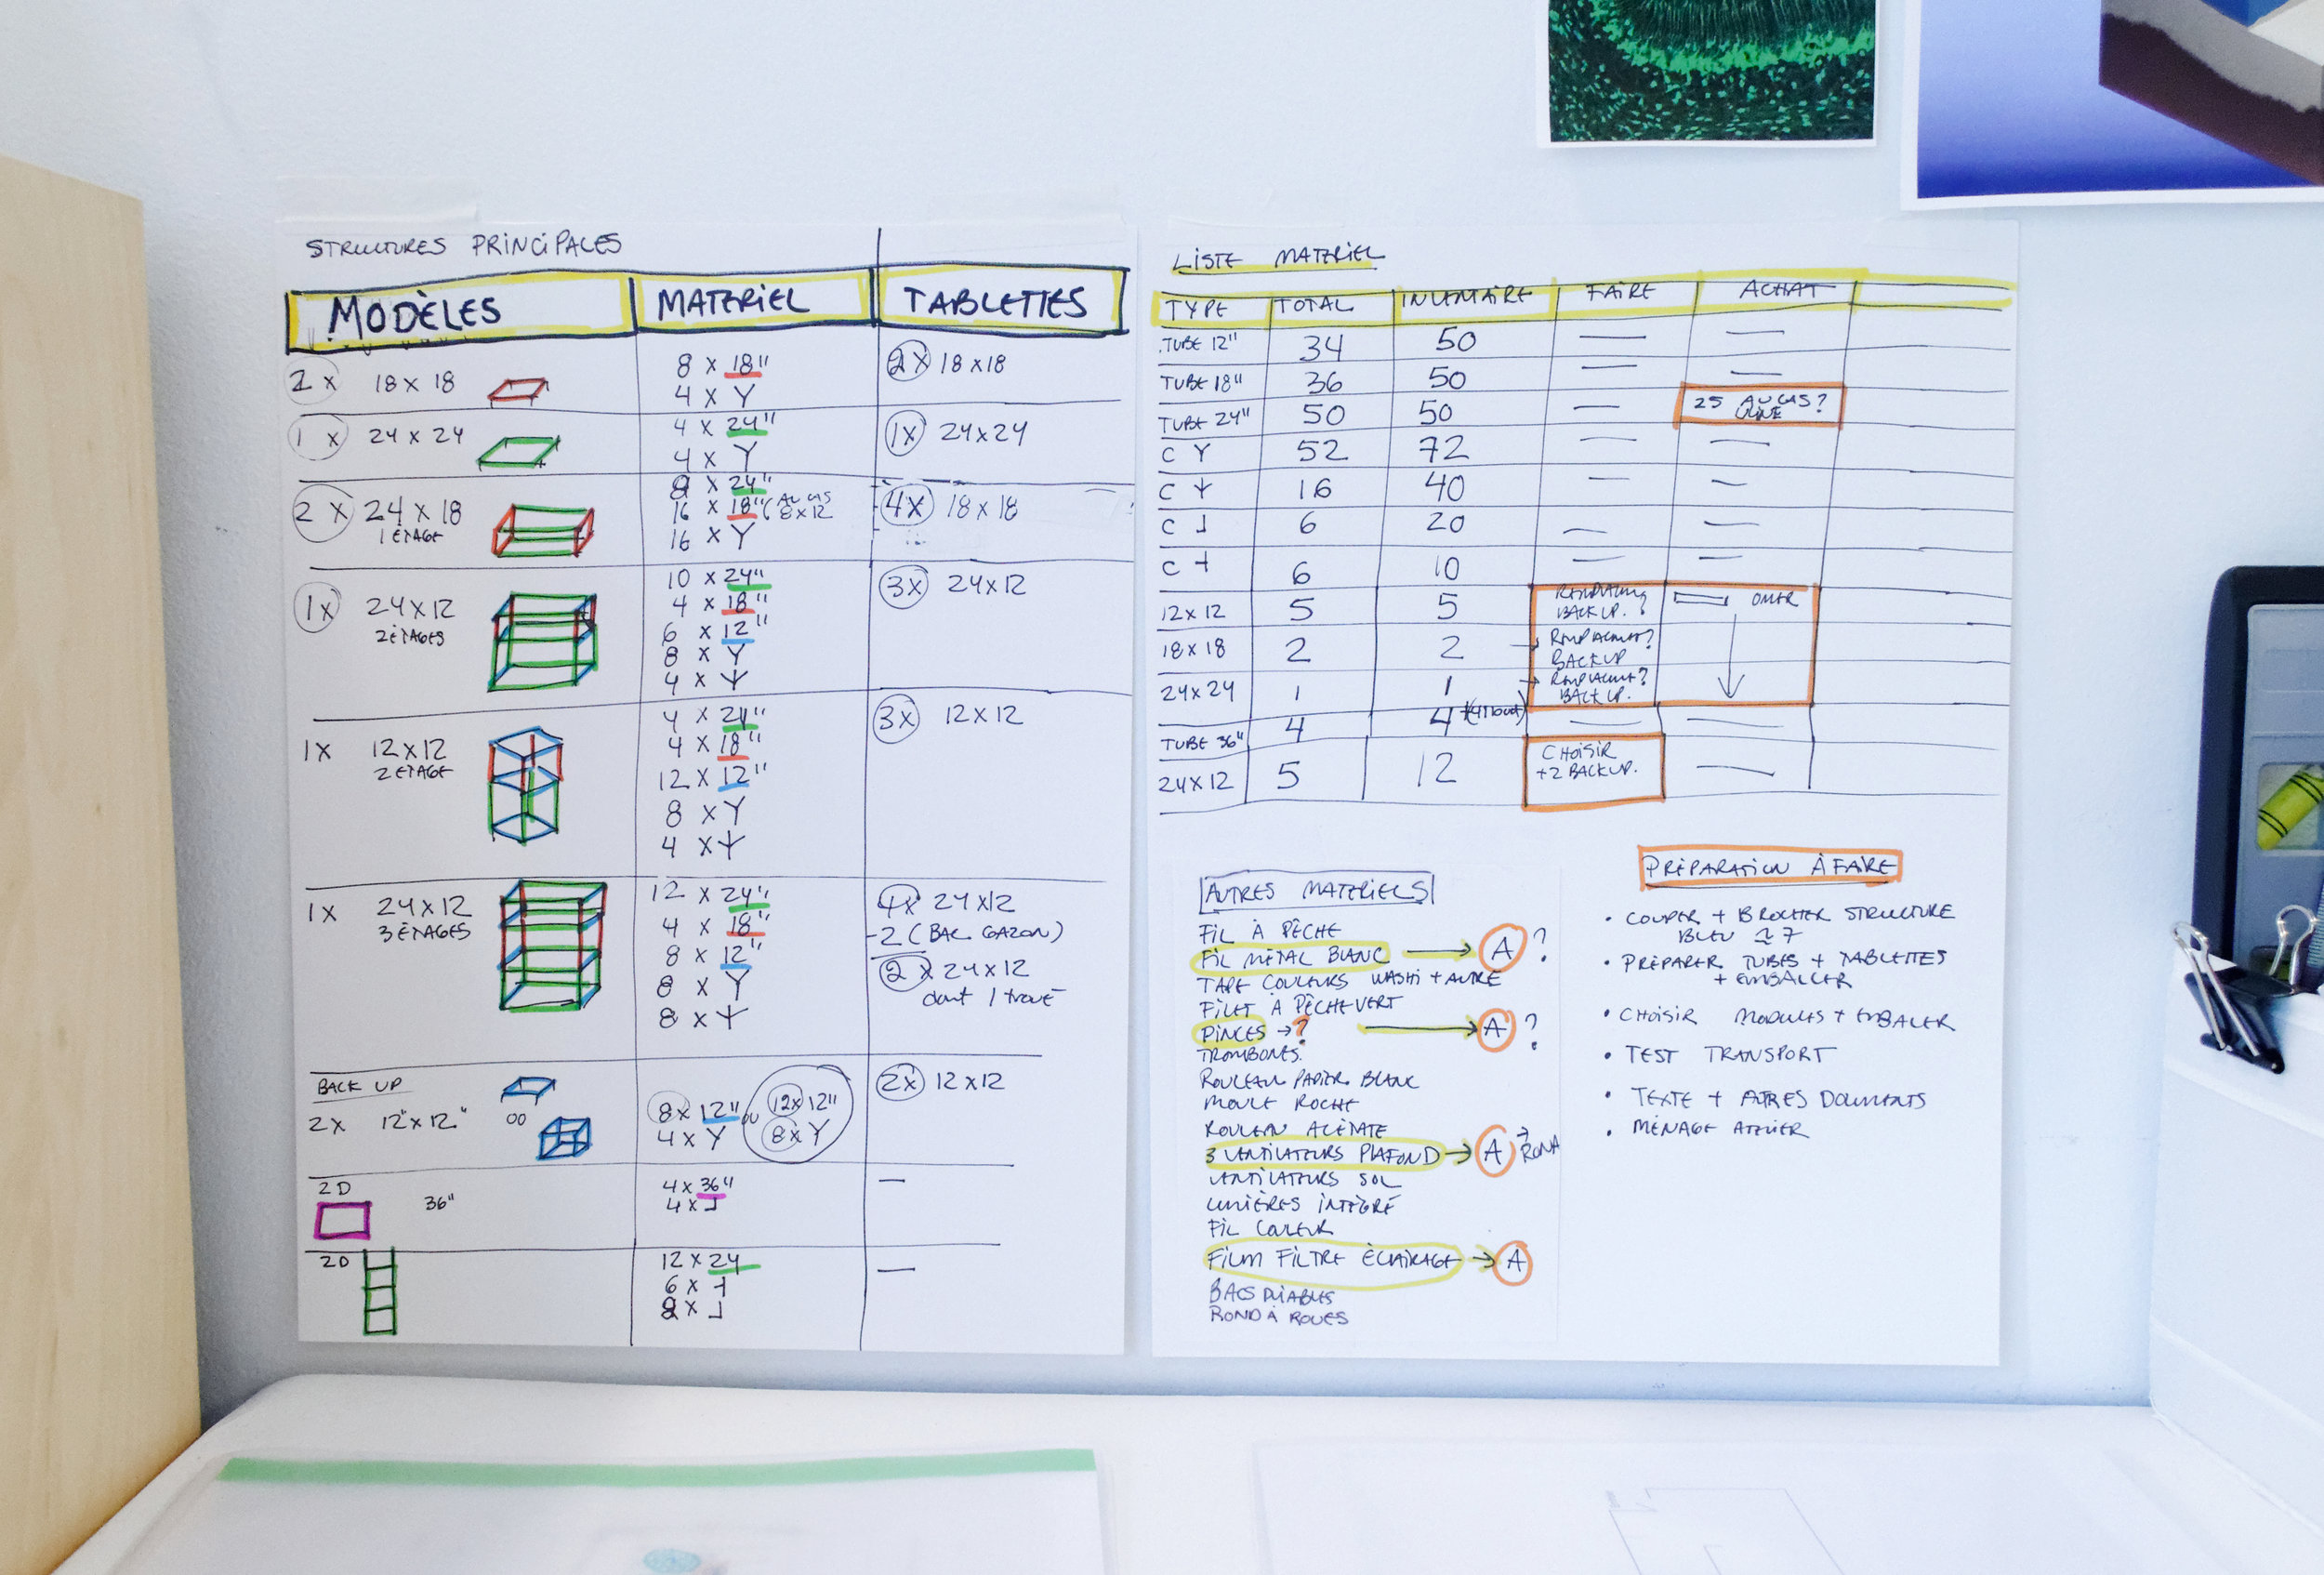 STRUCTURES PRINCIPALES
MODÈLES MATERIEL TABLETTES
2 x 18 x 18
8 x 18"
4 x Y
2x 18 x 18
1 x 24 x 24
4 x 24"
4 x Y
1x 24x24
2 x 24 x 18
1 ÉTAGE
8 x 24"
16 x 18" (AU CAS
8 x 12
16 x Y
4x 18 x 18
1x 24 x 12
2 ÉTAGES
10 x 24"
4 x 18"
6 x 12"
8 x Y
4 x
3x 24 x 12
1x 12 x 12
2 ETAGE
4 x 24"
4 x 18"
12 x 12"
8 x Y
4 x
3x 12 x 12
1x 24 x 12
3 ÉTAGES
12 x 24"
4 x 18"
8 x 12"
8 x Y
8 x
4x 24 x12
-2 (BAC GAZON)
2 x 24 x 12
dont 1 troué
BACK UP
2x 12"x 12"
8x 12" ou 12x 12"
4 x Y 8x Y
2x 12 x 12
2D
36"
4 x 36"
4 x ┘
—
2D
12 x 24
6 x ┤
8 x ┘
—
LISTE MATERIEL
TYPE TOTAL INVENTAIRE FAIRE ACHAT
TUBE 12" 34 50 — —
TUBE 18" 36 50 — —
TUBE 24" 50 50 — 25 AU CAS?
ULINE
C Y 52 72 — —
C 16 40 — —
C ┘ 6 20 — —
C ┤ 6 10 — —
12 x 12 5 5 BACK UP. OMER
18 x 18 2 2 REMPLACEMENT?
BACKUP
24x24 1 1 REMPLACEMENT?
BACK UP.
TUBE 36" 4 4 — —
24 x 12 5 12 CHOISIR
+2 BACKUP. —
AUTRES MATERIELS
FIL À PÊCHE
FIL MÉTAL BLANC → A ?
TAPE COULEURS WASHI + AUTRE
FILET A PÊCHE VERT
PINCES → ? → A ?
TROMBONES.
ROULEAU PAPIER BLANC
MOULE ROCHE
ROULEAU ACÉTATE
3 VENTILATEURS PLAFOND → A → RONA
VENTILATEURS SOL
LUMIÈRES INTÉGRÉ
FIL COULEUR
FILM FILTRE ÉCLAIRAGE → A
BACS PLIABLES
ROND À ROUES
PRÉPARATION À FAIRE
• COUPER + BROCHER STRUCTURE
BLEU ≃ 7
• PRÉPARER TUBES + TABLETTES
+ EMBALLER
• CHOISIR MODULES + EMBALER
• TEST TRANSPORT
• TEXTE + AUTRES DOCUMENTS
• MÉNAGE ATELIER